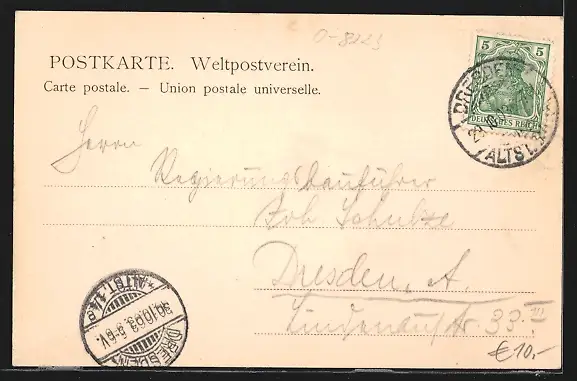 0-8223
POSTKARTE. Weltpostverein.
Carte postale. — Union postale universelle.
5 5
DEUTSCHES REICH
DRESDEN
ALTST.
Herrn
Regierungsbauführer
Joh. Schultze
Dresden, A.
Lindenaustr. 33 III
* ALTST. 14 e
30.10.03. 5-6 V.
DRESDEN
€10,-